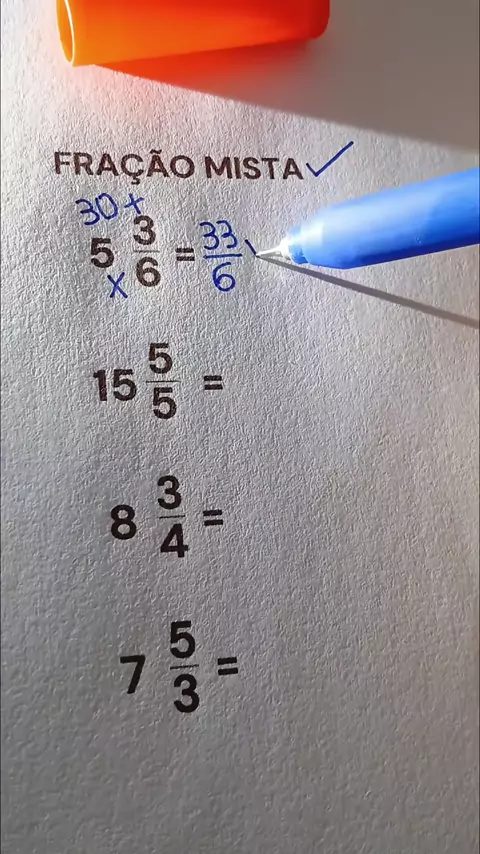 FRAÇÃO MISTA ✓
30 +
5 3/6 = 33/6
x
15 5/5 =
8 3/4 =
7 5/3 =